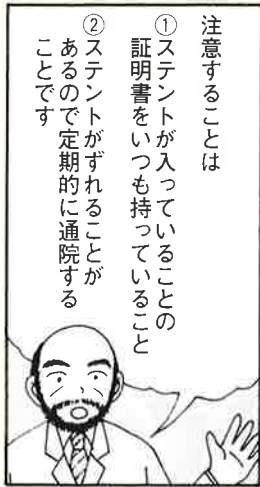 注意することは
①ステントが入っていることの
証明書をいつも持っていること
②ステントがずれることが
あるので定期的に通院する
ことです